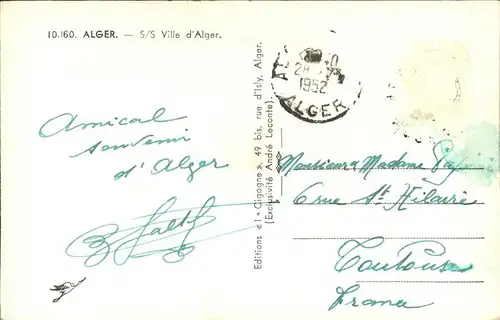 10.160. ALGER. — S/S Ville d'Alger.
ALGER
1952
Amical
souvenir
d'Alger
Editions « l'Cigogne », 49 bis, rue d'Isly, Alger.
(Exclusivité André Leconte).
Monsieur & Madame
6 rue St Hilaire
Toulouse
France